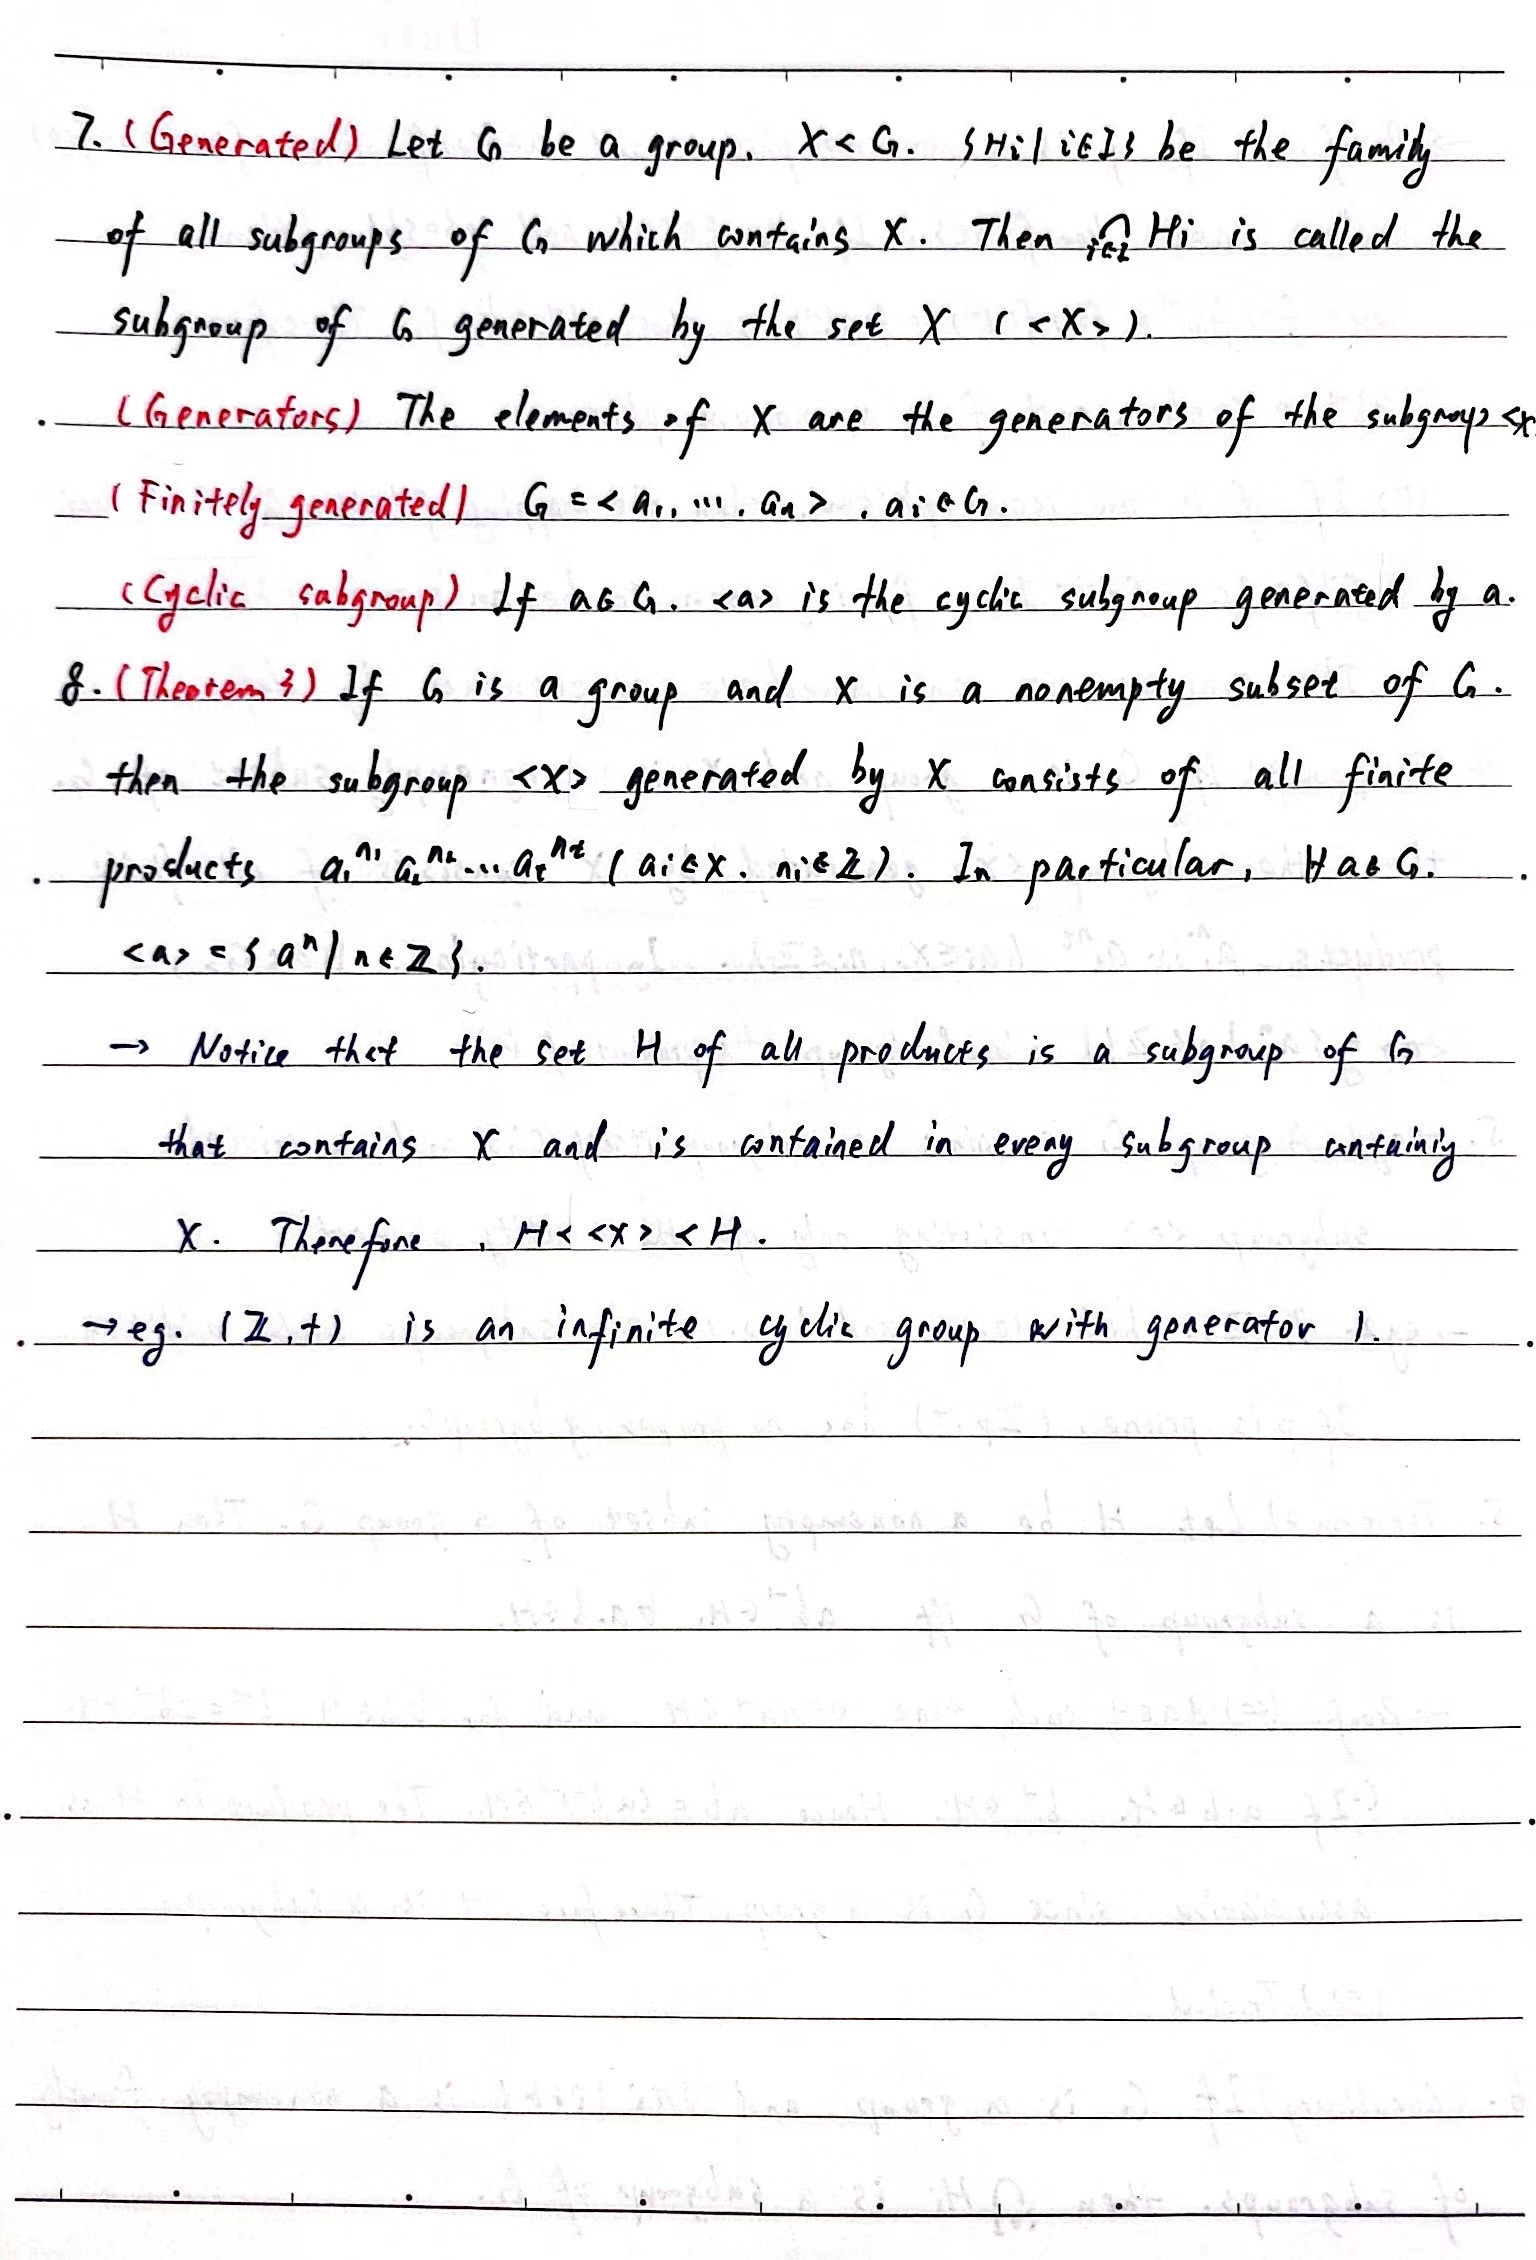 7. (Generated) Let G be a group. X < G. {Hi | i∈I} be the family
of all subgroups of G which contains X. Then ⋂_{i∈I} Hi is called the
subgroup of G generated by the set X (<X>).
(Generators) The elements of X are the generators of the subgroup <X
(Finitely generated) G = <a₁, ..., aₙ>, ai∈G.
(Cyclic subgroup) If a∈G. <a> is the cyclic subgroup generated by a.
8. (Theorem 3) If G is a group and X is a nonempty subset of G.
then the subgroup <X> generated by X consists of all finite
products a₁^{n₁} a₂^{n₂} ... a_t^{n_t} (ai∈X. ni∈ℤ). In particular, ∀a∈G.
<a> = {aⁿ | n∈ℤ}.
→ Notice that the set H of all products is a subgroup of G
that contains X and is contained in every subgroup containing
X. Therefore, H < <X> < H.
→ eg. (ℤ, +) is an infinite cyclic group with generator 1.